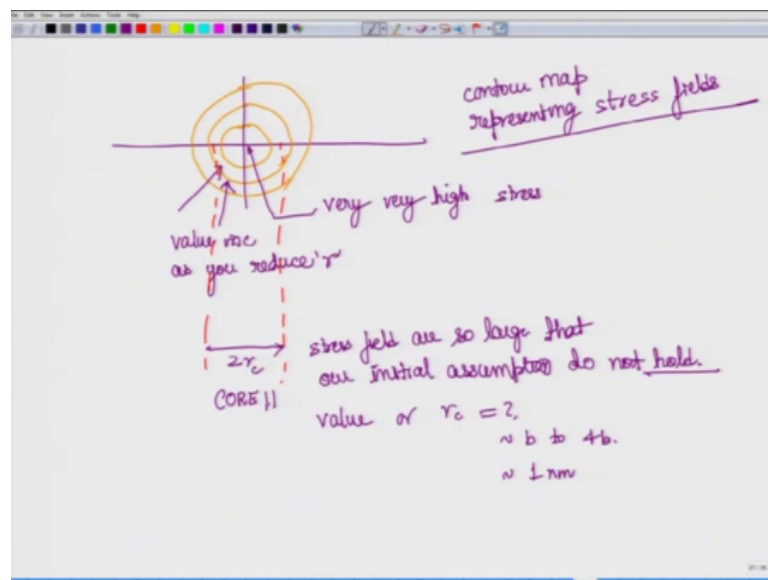 contour map
representing stress fields
very very high stress
value rise
as you reduce 'r'
stress field are so large that
our initial assumptions do not hold.
2r_c
CORE !!
value of r_c = ?
~ b to 4b.
~ 1 nm